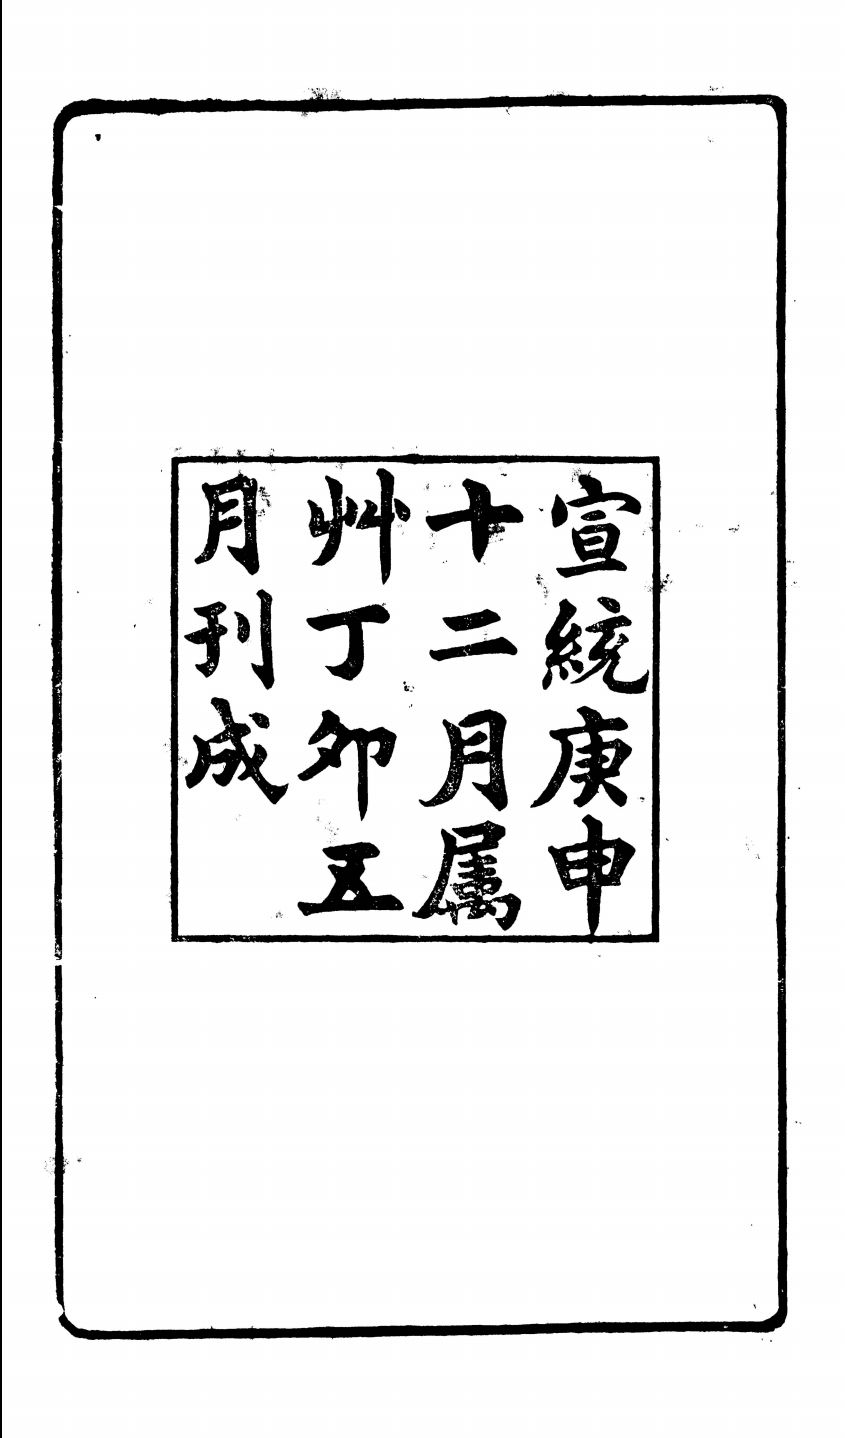 宣統庚申
十二月属
艸丁卯五
月刊成